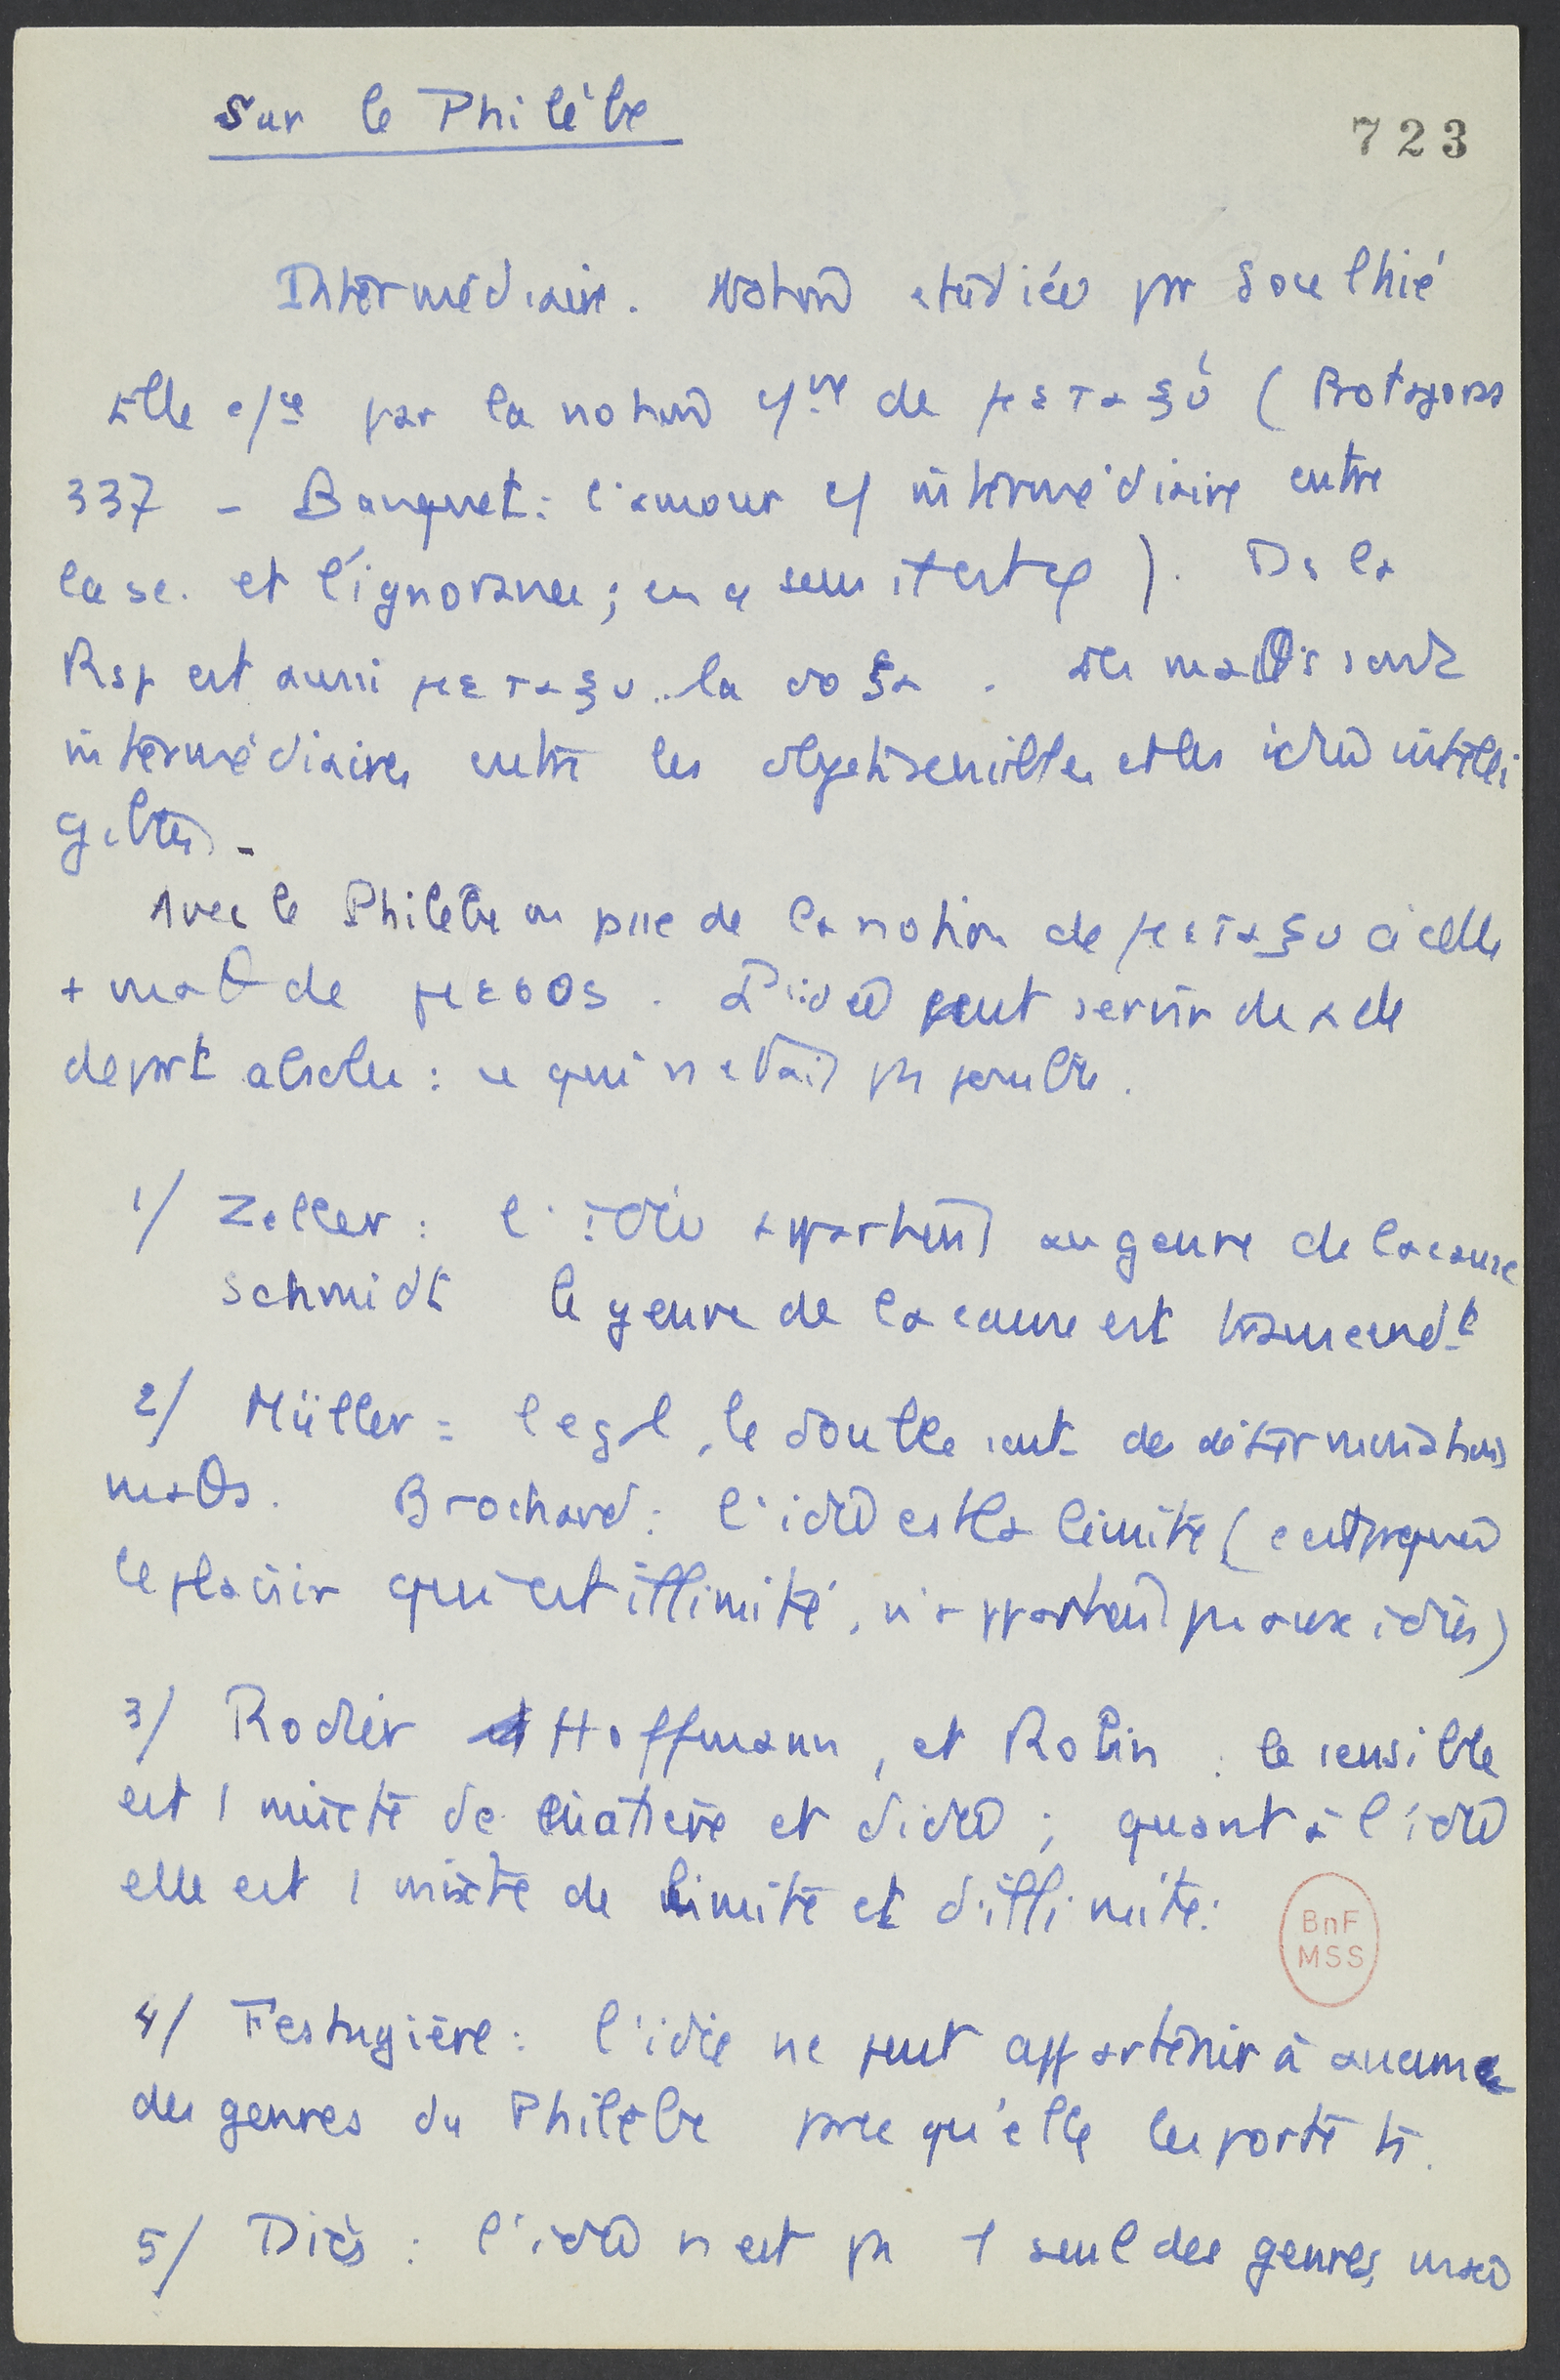 Sur le Philèbe
723
Intermédiaire. Notion étudiée par Souilhé
Elle c/ce par la notion de μεταξύ (Protagoras
337 - Banquet : l'amour e/ intermédiaire entre
la sc. et l'ignorance ; en ce sens il est φ). Ds la
Rep est aussi μεταξυ la δοξα. Les maθs sont
intermédiaires entre les objets sensibles et les idées intelli
gibles -
Avec le Philèbe on passe de la notion de μεταξυ à celle
+ maθ de μεσος. L'idée peut servir de de
départ absolu : ce qui n'était pas possible.
1/ Zeller : l'idée appartient au genre de la cause
Schmidt le genre de la cause est transcendt
2/ Müller : l'egal, le double sont des déterminations
maθs. Brochard : l'idée est la limite (c'est pourquoi
le plaisir qui est illimité, n'appartient pas aux idées)
3/ Rodier Hoffmann, et Robin : le sensible
est 1 mixte de matière et d'idée ; quant à l'idée
elle est 1 mixte de limite et d'illimité.
BnF
MSS
4/ Festugière : l'idée ne peut appartenir à aucune
des genres du Philèbe parce qu'elle les porte ts.
5/ Diès : l'idée n'est pas 1 seul des genres, mais